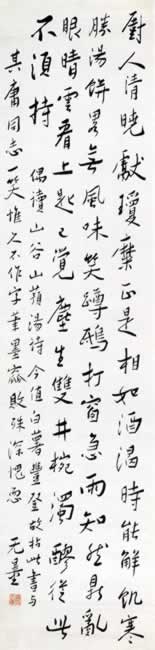 廚人清曉獻瓊糜正是相如酒渴時能解飢寒
勝湯餅畧無風味笑蹲鴟打窗急雨知然鼎亂
眼晴雲看上匙已覺塵生雙井椀濁醪從此
不須持
偶讀山谷山藷湯詩今值白薯豐登故拈此書與
其庸同志一笑惟久不作字筆墨孤敗殊深愧恧
无量